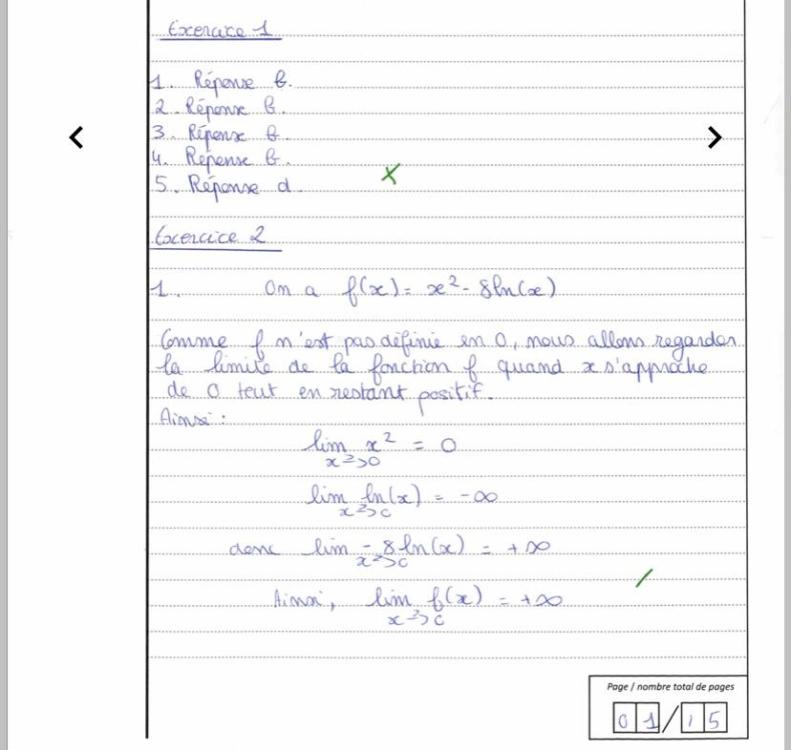 Exercice 1
1. Réponse b.
2. Réponse b.
3. Réponse b.
4. Réponse b.
5. Réponse d.
Exercice 2
1. On a f(x) = x² - 8ln(x)
Comme f n'est pas définie en 0, nous allons regarder
la limite de la fonction f quand x s'approche
de 0 tout en restant positif.
Ainsi :
lim x² = 0
x→0
lim ln(x) = -∞
x→0
donc lim -8ln(x) = +∞
x→0
Ainsi, lim f(x) = +∞
x→0
Page / nombre total de pages
01/15